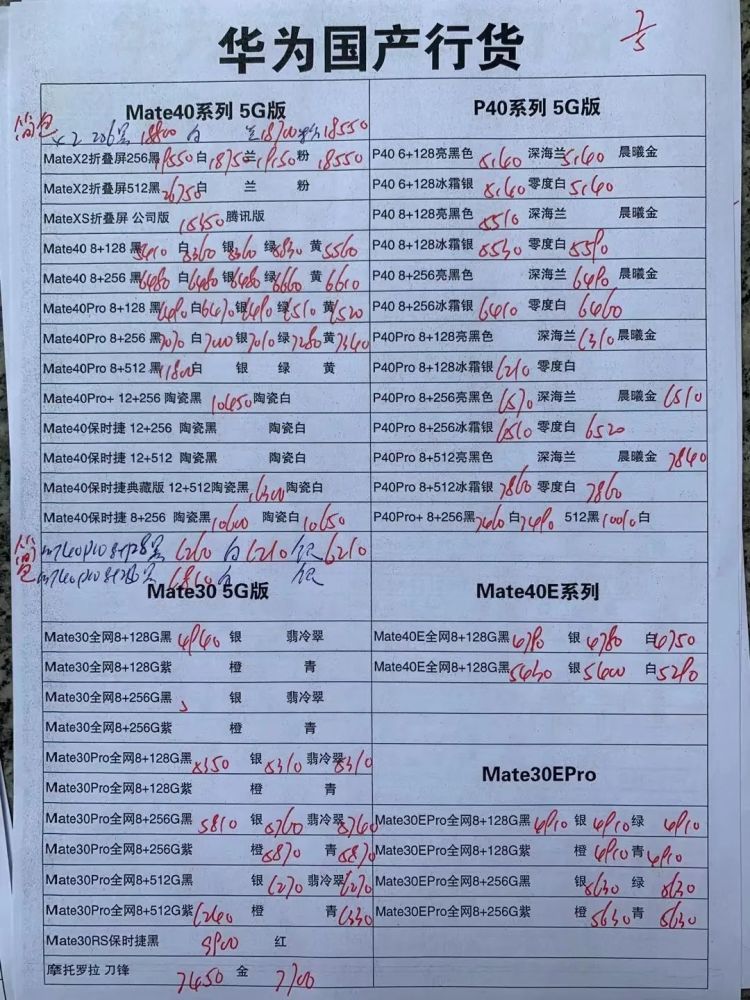 华为国产行货
7/5
Mate40系列 5G版
简包 X2 256黑 18800 白 兰 18700 粉 18550
MateX2折叠屏256黑 19550 白 18750 兰 19150 粉 18550
MateX2折叠屏512黑 26750 白 兰 粉
MateXS折叠屏 公司版 15150 腾讯版
Mate40 8+128 黑 白 5360 银 5360 绿 黄 5560
Mate40 8+256 黑 6480 白 6480 银 6480 绿 6660 黄 6610
Mate40Pro 8+128 黑 6490 白 6470 银 6490 绿 6510 黄 6520
Mate40Pro 8+256 黑 7070 白 7000 银 7010 绿 7280 黄 7340
Mate40Pro 8+512 黑 11800 白 银 绿 黄
Mate40Pro+ 12+256 陶瓷黑 10450 陶瓷白
Mate40保时捷 12+256 陶瓷黑 陶瓷白
Mate40保时捷 12+512 陶瓷黑 陶瓷白
Mate40保时捷典藏版 12+512陶瓷黑 16300 陶瓷白
Mate40保时捷 8+256 陶瓷黑 10600 陶瓷白 10650
简包 m40pro 8+128黑 6260 白 6210 银 6210
m40pro 8+256黑 6810 白 银
P40系列 5G版
P40 6+128亮黑色 5140 深海兰 5140 晨曦金
P40 6+128冰霜银 5140 零度白 5140
P40 8+128亮黑色 5510 深海兰 晨曦金
P40 8+128冰霜银 5530 零度白 5590
P40 8+256亮黑色 深海兰 6490 晨曦金
P40 8+256冰霜银 6410 零度白 6460
P40Pro 8+128亮黑色 深海兰 6310 晨曦金
P40Pro 8+128冰霜银 6210 零度白
P40Pro 8+256亮黑色 6570 深海兰 晨曦金 6510
P40Pro 8+256冰霜银 6510 零度白 6520
P40Pro 8+512亮黑色 深海兰 晨曦金 7840
P40Pro 8+512冰霜银 7860 零度白 7860
P40Pro+ 8+256黑 7460 白 7490 512黑 10010 白
Mate30 5G版
Mate30全网8+128G黑 4940 银 翡冷翠
Mate30全网8+128G紫 橙 青
Mate30全网8+256G黑 银 翡冷翠
Mate30全网8+256G紫 橙 青
Mate30Pro全网8+128G黑 5350 银 5310 翡冷翠 5310
Mate30Pro全网8+128G紫 橙 青
Mate30Pro全网8+256G黑 5810 银 5760 翡冷翠 5760
Mate30Pro全网8+256G紫 橙 5870 青 5870
Mate30Pro全网8+512G黑 银 6270 翡冷翠 6270
Mate30Pro全网8+512G紫 6240 橙 青 6330
Mate30RS保时捷黑 9900 红
摩托罗拉 刀锋 7450 金 7700
Mate40E系列
Mate40E全网8+128G黑 4790 银 4780 白 4750
Mate40E全网8+128G黑 5430 银 5400 白 5290
Mate30EPro
Mate30EPro全网8+128G黑 4910 银 4910 绿 4910
Mate30EPro全网8+128G紫 橙 4910 青 4910
Mate30EPro全网8+256G黑 银 5630 绿 5630
Mate30EPro全网8+256G紫 橙 5630 青 5630